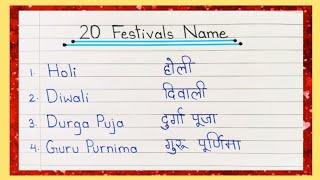 20 Festivals Name
1. Holi होली
2. Diwali दिवाली
3. Durga Puja दुर्गा पूजा
4. Guru Purnima गुरू पूर्णिमा